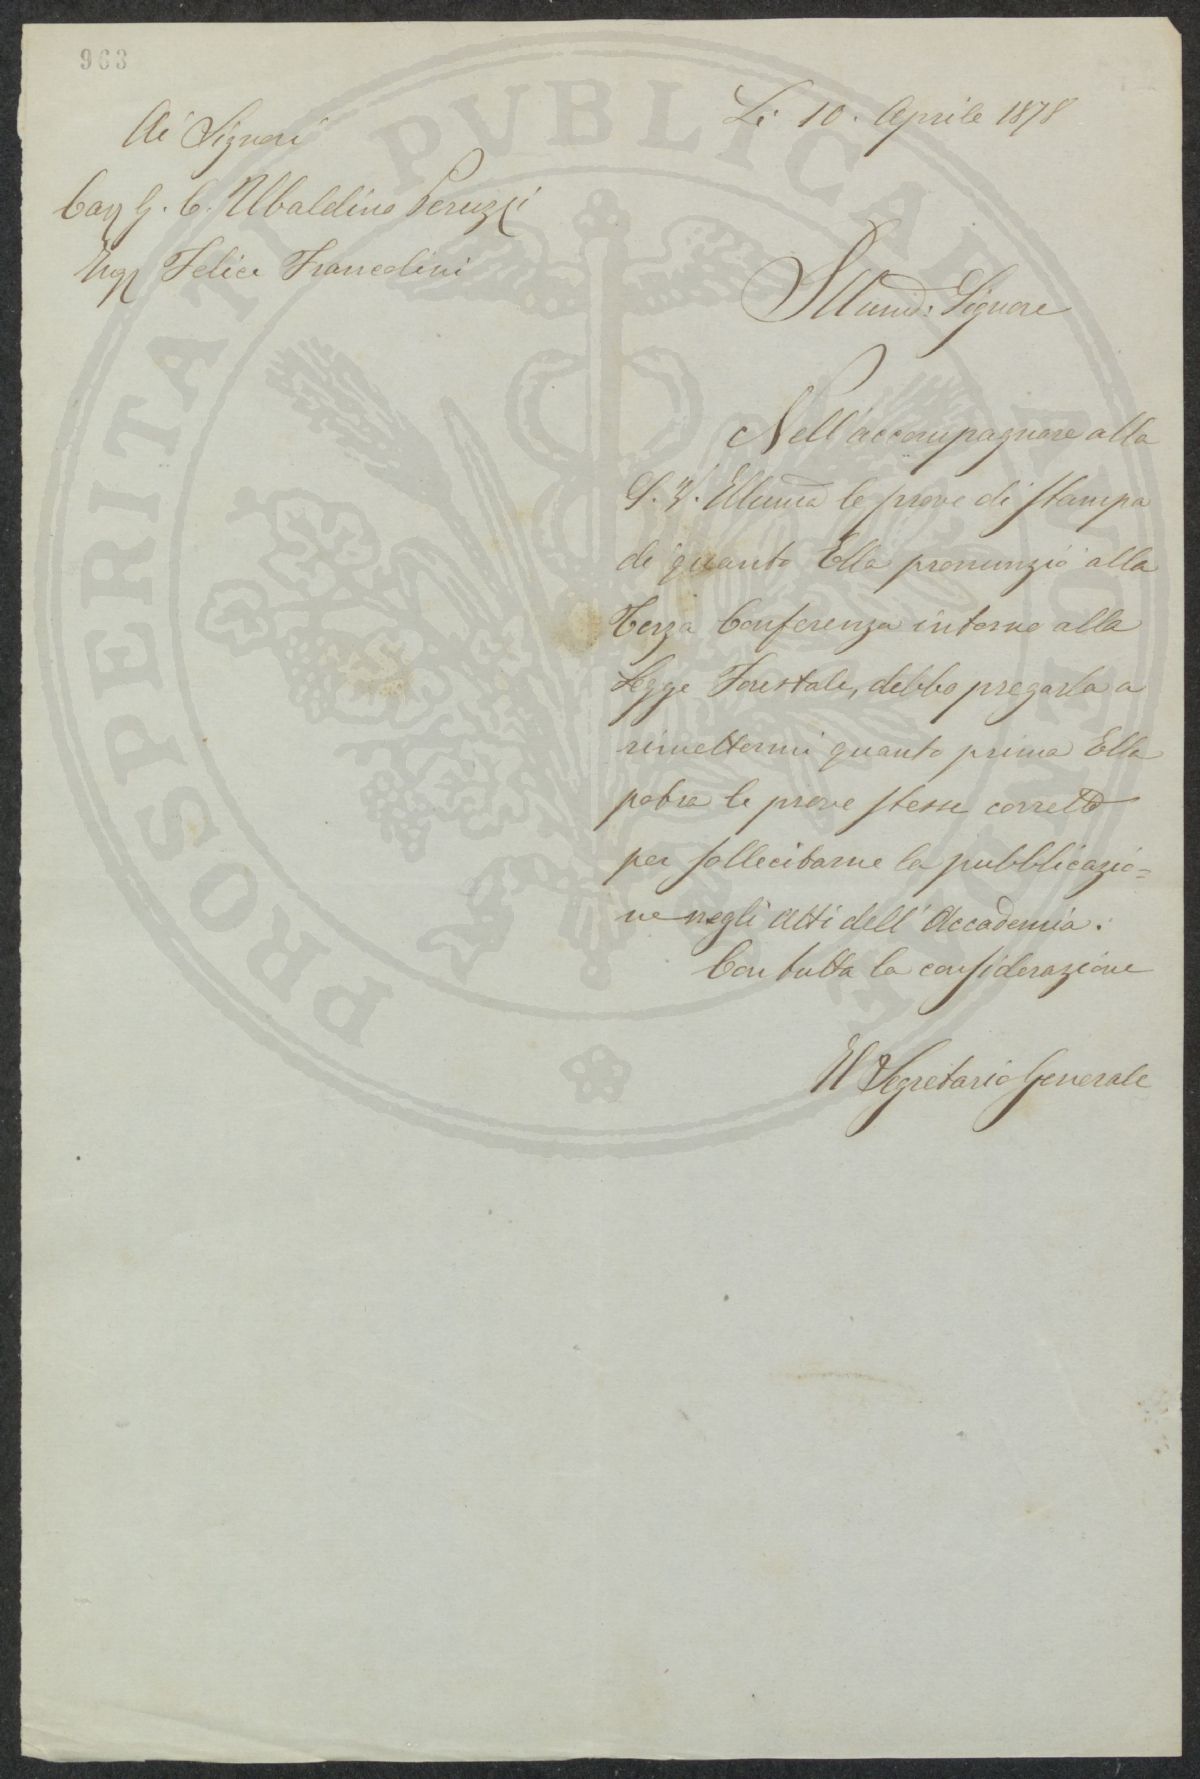 963
Li 10. Aprile 1878
Ai Signori
Cav G. C. Ubaldino Peruzzi
Ing Felice Francolini
Illmo: Signore
Nell'accompagnare alla
S. V. Illma le prove di stampa
di quanto Ella pronunziò alla
Terza Conferenza intorno alla
Legge Forestale, debbo pregarla a
rimettermi quanto prima Ella
potrà le prove stesse corrette
per sollecitarne la pubblicazio=
ne negli Atti dell'Accademia.
Con tutta la considerazione
Il Segretario Generale
PROSPERITATI PVBLICAE